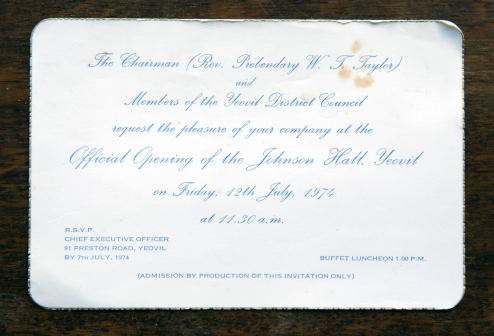 The Chairman (Rev. Prebendary W. T. Taylor)
and
Members of the Yeovil District Council
request the pleasure of your company at the
Official Opening of the Johnson Hall, Yeovil
on Friday, 12th July, 1974
at 11.30 a.m.
R.S.V.P.
CHIEF EXECUTIVE OFFICER
91 PRESTON ROAD, YEOVIL
BY 7TH JULY, 1974
BUFFET LUNCHEON 1.00 P.M.
(ADMISSION BY PRODUCTION OF THIS INVITATION ONLY)